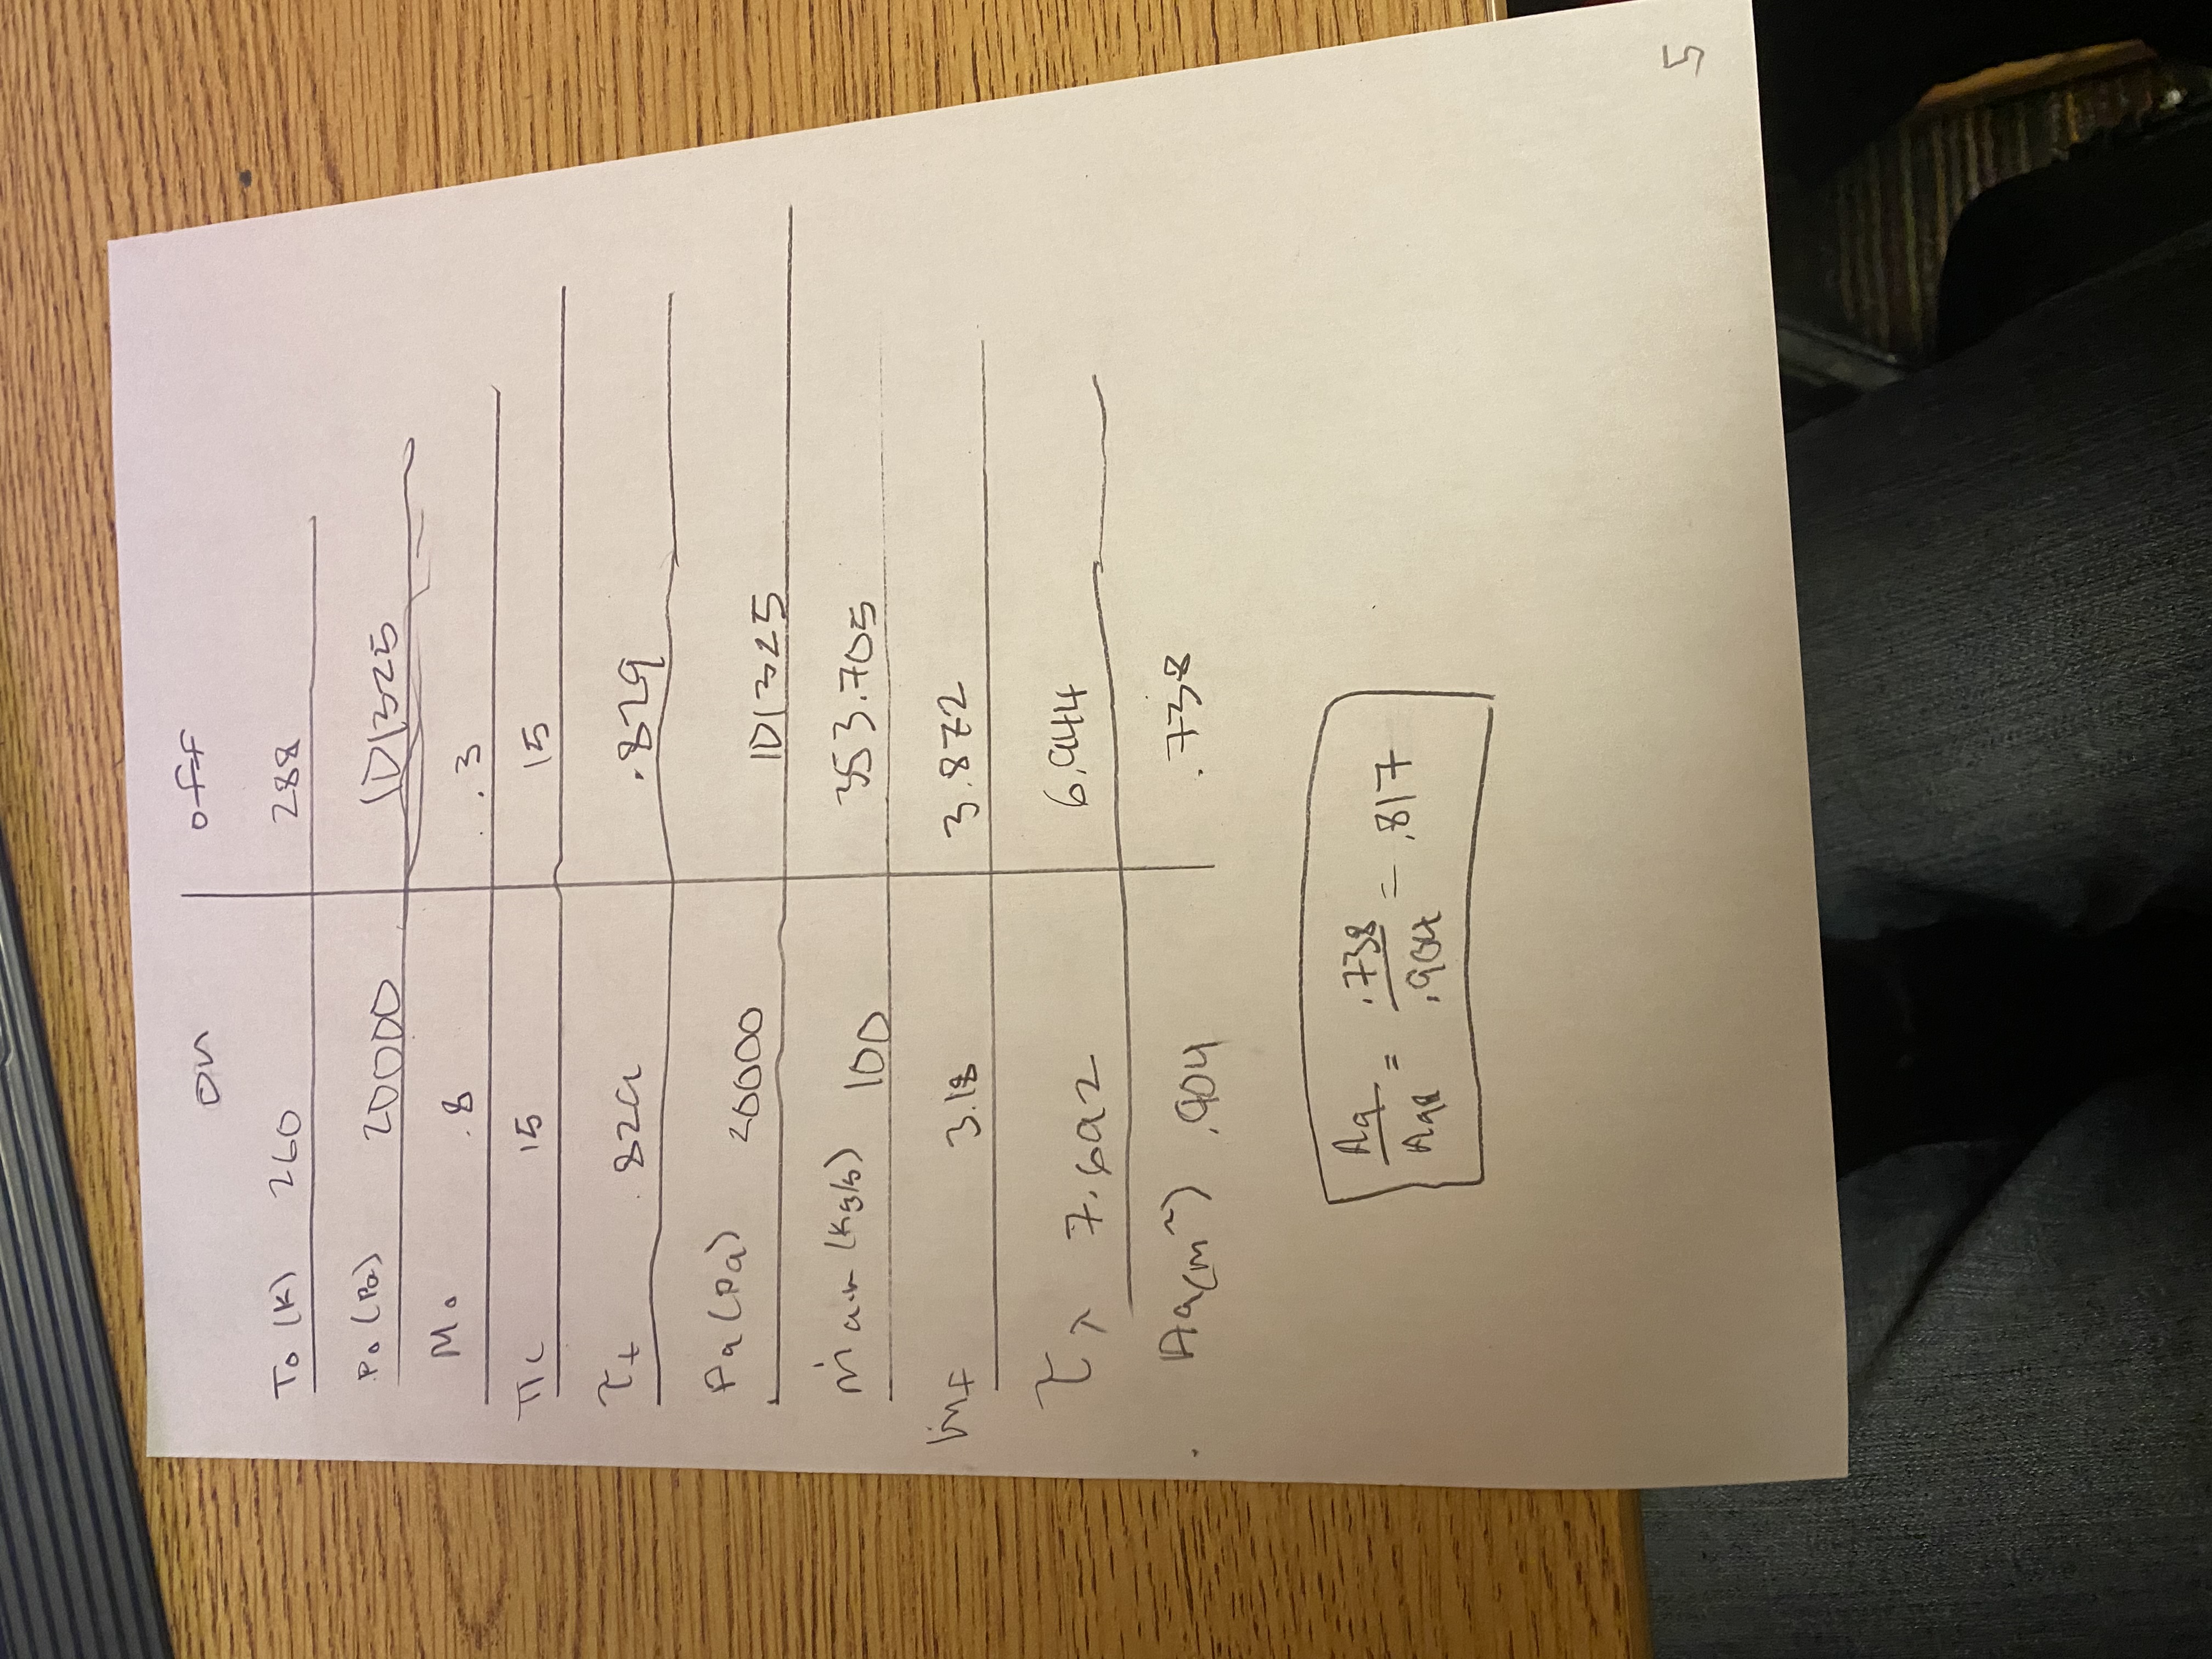 on off
To (K) 260 288
Po (Pa) 20000 101325
Mo .8 .3
πc 15 15
τt .829 .829
P9 (Pa) 20000 101325
ṁair (kg/s) 100 353.705
ṁf 3.18 3.872
τλ 7.692 6.944
A9(m²) .904 .738
A9/A9R = .738/.904 = .817
5